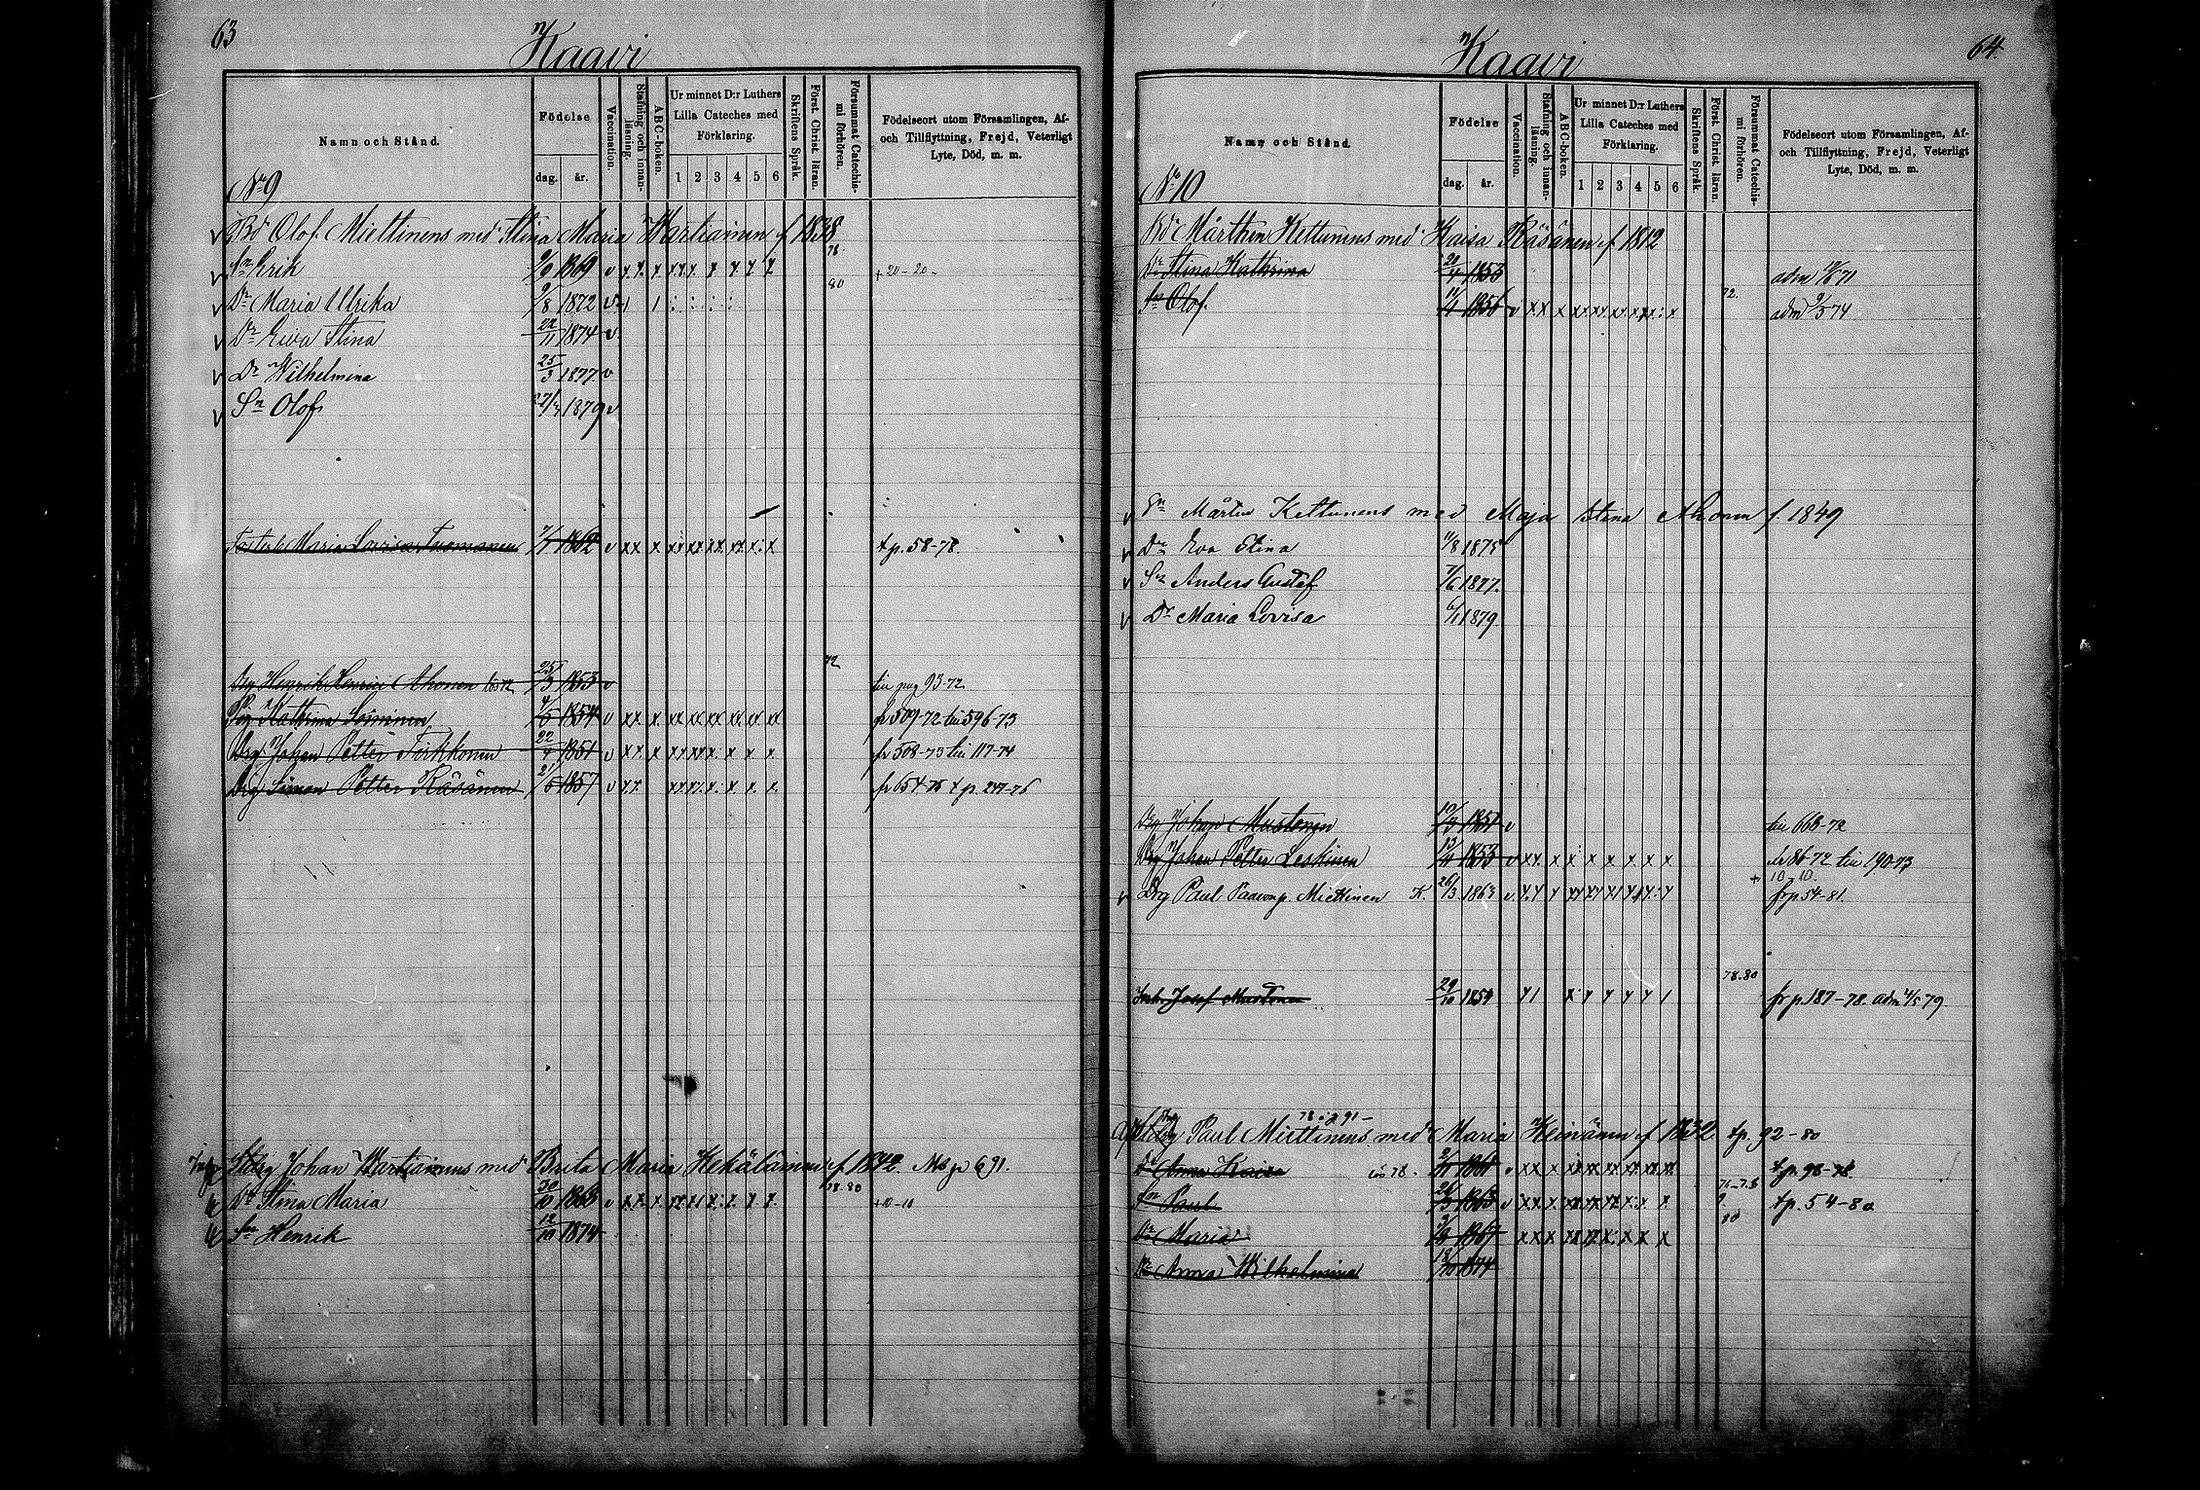 63
Kaavi
Namn och Stånd.
Födelse
dag. år.
Vaccination.
Stafning och innanläsning.
ABC-boken.
Ur minnet D:r Luthers Lilla Cateches med Förklaring.
1 2 3 4 5 6
Skriftens Språk.
Först. Christ. läran.
Försummat Catechismi förhören.
Födelseort utom Församlingen, Af- och Tillflyttning, Frejd, Veterligt Lyte, Död, m. m.
No 9
Bd Olof Miettinens med Stina Maria Martiainen f 1838
Sn Erik 9/9 1869 v 78 + 20-20
Dr Maria Ulrika 9/8 1872 v 80
Dr Eva Stina 22/11 1874 v
Dr Wilhelmina 25/3 1877 v
Sn Olof 27/4 1879 v
Maria Lovisa Tuomainen 7/7 1862 v xx x t.p. 58-78.
Drg Henrik Henrici Ahonen 25/3 1853 v 72 till pag 93-72
Kathrina Soininen 4/5 1854 v xx x fr 509-72 till 596-73
Drg Johan Petter Tirkkonen 22/4 1851 v xx x fr 508-73 till 117-74
Drg Simon Petter Räsänen 21/5 1857 v fr 654-75 t p. 277-76
Johan Martiainens med Brita Maria Hekäläinen f 1842. Ms p 691.
Dr Stina Maria 30/10 1863 v 78.80 +10-10
Sn Henrik 12/10 1874
64.
Kaavi
Namn och Stånd.
Födelse
dag. år.
Vaccination.
Stafning och innanläsning.
ABC-boken.
Ur minnet D:r Luthers Lilla Cateches med Förklaring.
1 2 3 4 5 6
Skriftens Språk.
Först. Christ. läran.
Försummat Catechismi förhören.
Födelseort utom Församlingen, Af- och Tillflyttning, Frejd, Veterligt Lyte, Död, m. m.
No 10
Bd Mårthen Kettunens med Kaisa Räsänen f 1812
Dr Stina Kathrina 20/4 1853 adm 71
Sn Olof. 1856 v xx x 72. adm 9/5 74
Sn Mårten Kettunens med Maja Stina Ahonen f. 1849
Dr Eva Stina 11/8 1875
Sn Anders Gustaf 7/6 1877.
Dr Maria Lovisa 6/1 1879
Drg Johan Mustonen 10/3 1851 v till 663-72
Drg Johan Petter Leskinen 13/4 1853 v xx x x x x x x x fr 86-72 till 190-73
+ 10-10.
Drg Paul Paavonp. Miettinen K. 26/3 1863 v fr p 54-81.
78.80
Inh. Josef Mustonen 29/10 1854 fr p. 187-78. adm 4/5 79
78 p 91 -
Paul Miettinens med Maria Keinänen f 1832 t.p. 92-80
Dr Anna Kaisa 1861 v t.p. 98-78.
Sn Paul 26/3 1863 v t.p. 54-80
Dr Maria 1867 80
Dr Anna Wilhelmina 18/10 1874